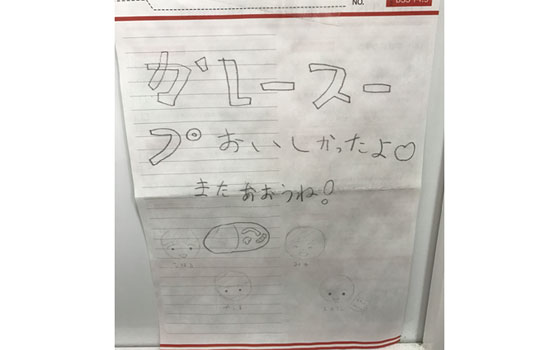 NO.
かレースー
プおいしかったよ♡
またあおうね!